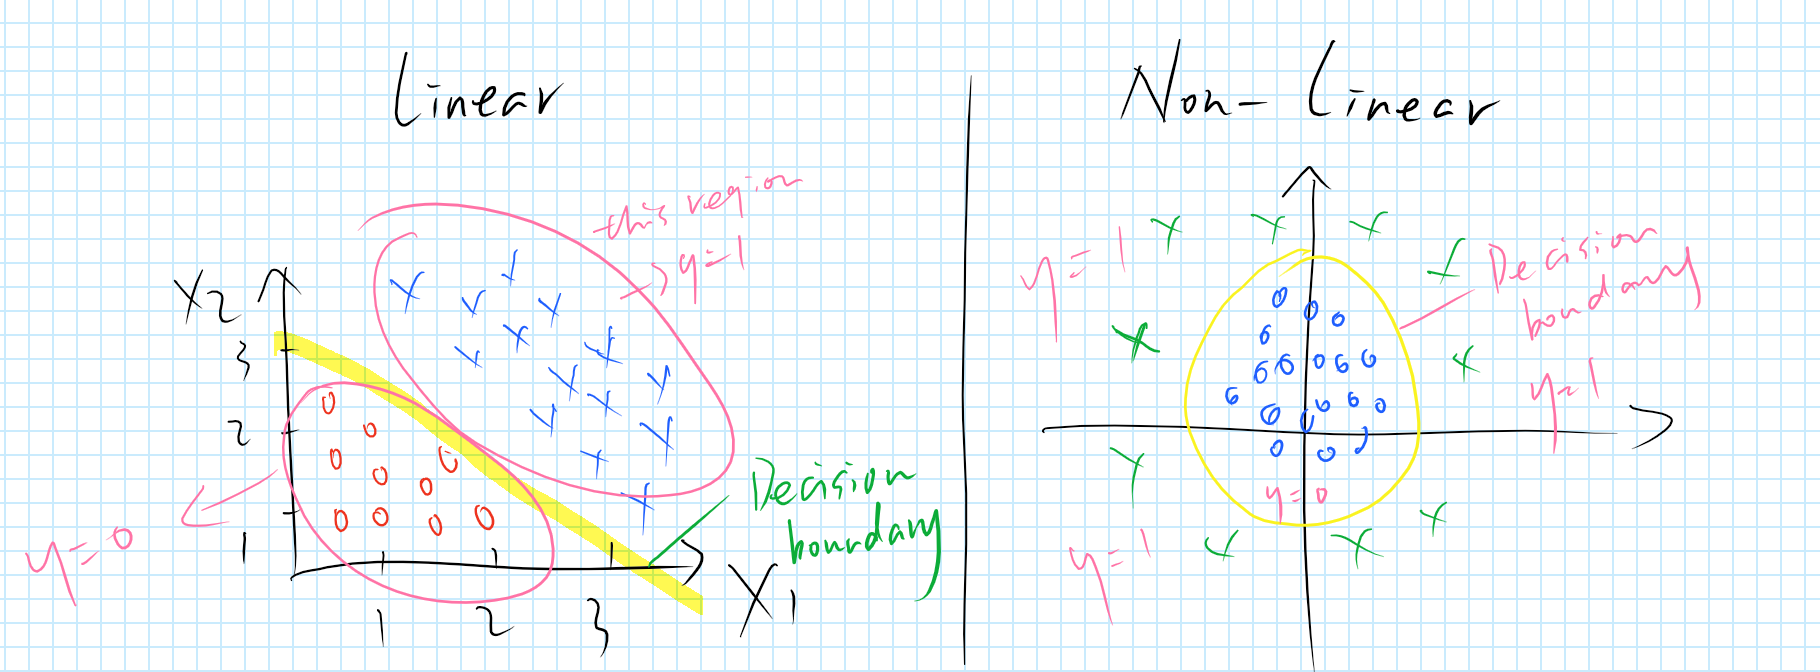 Linear
this region
→ y=1
X2
3
2
1
y=0
1
2
3
X1
Decision
boundary
Non-Linear
y=1
Decision
boundary
y=1
y=0
y=1